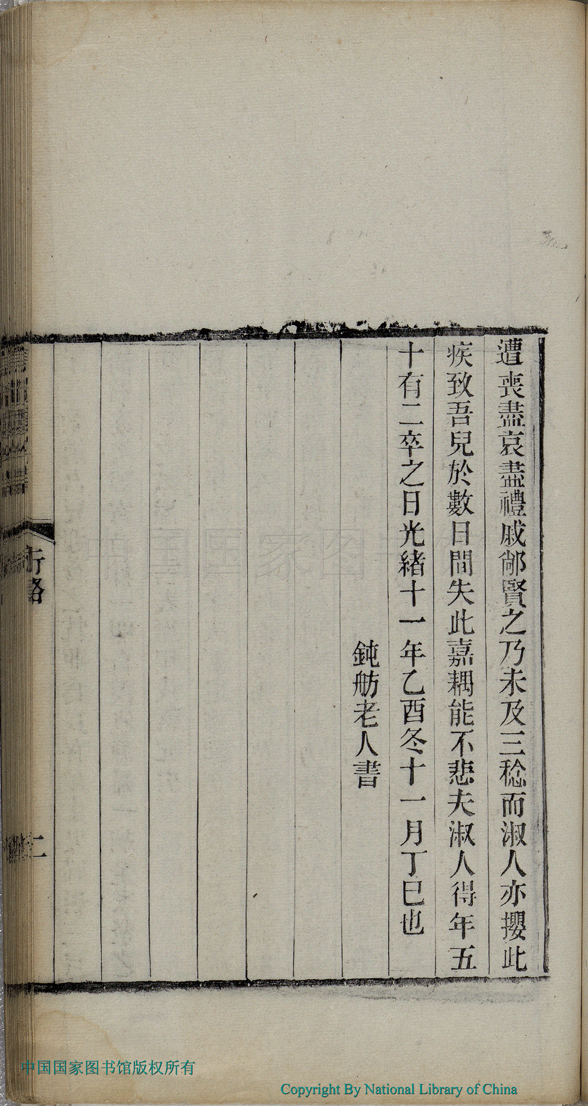 遭喪盡哀盡禮戚鄰賢之乃未及三稔而淑人亦攖此
疾致吾兒於數日間失此嘉耦能不悲夫淑人得年五
十有二卒之日光緒十一年乙酉冬十一月丁巳也
鈍舫老人書
行略
二
中国国家图书馆版权所有
Copyright By National Library of China